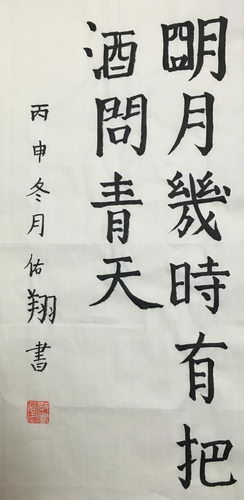 明月幾時有把
酒問青天
丙申冬月佑翔書